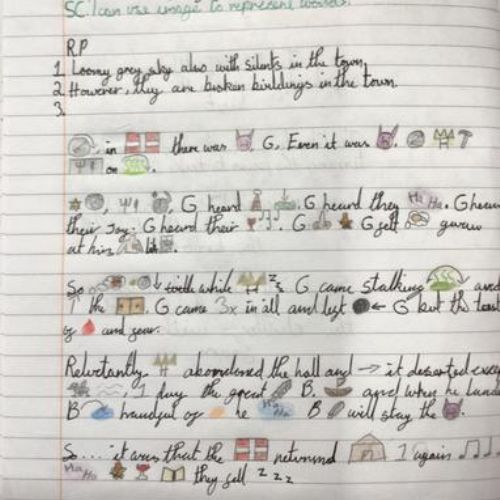 SC: I can use image to represent words.
R.P
1. Loomy grey sky also with silents in the town
2. However, they are broken buildings in the town.
3.
in there was G. Even it was
on
G heard G heard they Ha Ha. G heard
their joy. G heard their G G felt
at him
So while z z G came stalking and
the G came 3x in all and left ← G but the
of and
Reluntantly H abandoned the hall and → it deserted
1 day the great B. and when he
B handful of he Ha Ha B will stay the
S... it was that the returned I again
Ha Ha they fell z z z